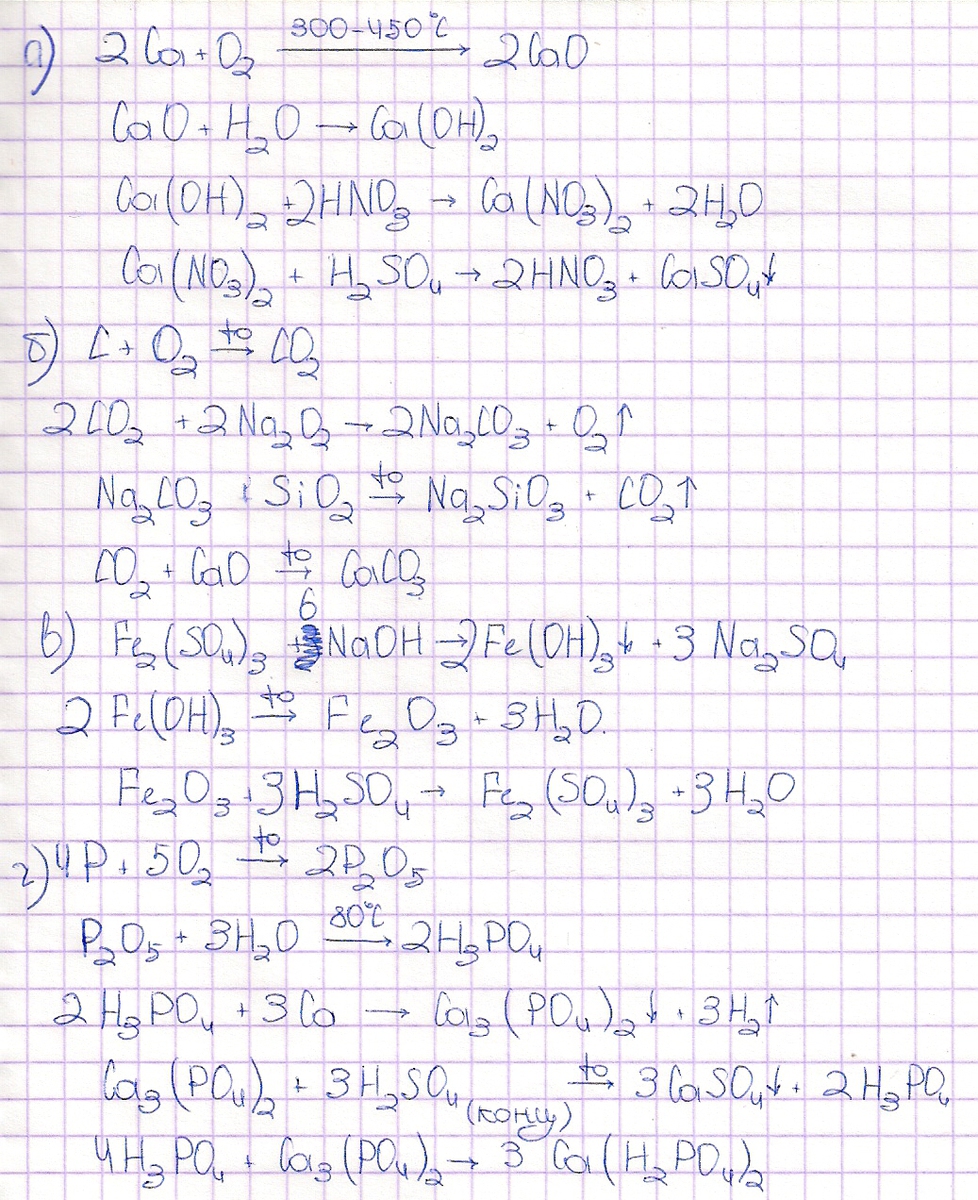 а) 2Ca + O₂ 300-450°C → 2CaO
CaO + H₂O → Ca(OH)₂
Ca(OH)₂ + 2HNO₃ → Ca(NO₃)₂ + 2H₂O
Ca(NO₃)₂ + H₂SO₄ → 2HNO₃ + CaSO₄↓
б) C + O₂ to → CO₂
2CO₂ + 2Na₂O₂ → 2Na₂CO₃ + O₂↑
Na₂CO₃ + SiO₂ to → Na₂SiO₃ + CO₂↑
CO₂ + CaO to → CaCO₃
в) Fe₂(SO₄)₃ + 6NaOH → 2Fe(OH)₃↓ + 3Na₂SO₄
2Fe(OH)₃ to → Fe₂O₃ + 3H₂O.
Fe₂O₃ + 3H₂SO₄ → Fe₂(SO₄)₃ + 3H₂O
г) 4P + 5O₂ to → 2P₂O₅
P₂O₅ + 3H₂O 80°C → 2H₃PO₄
2H₃PO₄ + 3Ca → Ca₃(PO₄)₂↓ + 3H₂↑
Ca₃(PO₄)₂ + 3H₂SO₄ (конц) to → 3CaSO₄↓ + 2H₃PO₄
4H₃PO₄ + Ca₃(PO₄)₂ → 3Ca(H₂PO₄)₂